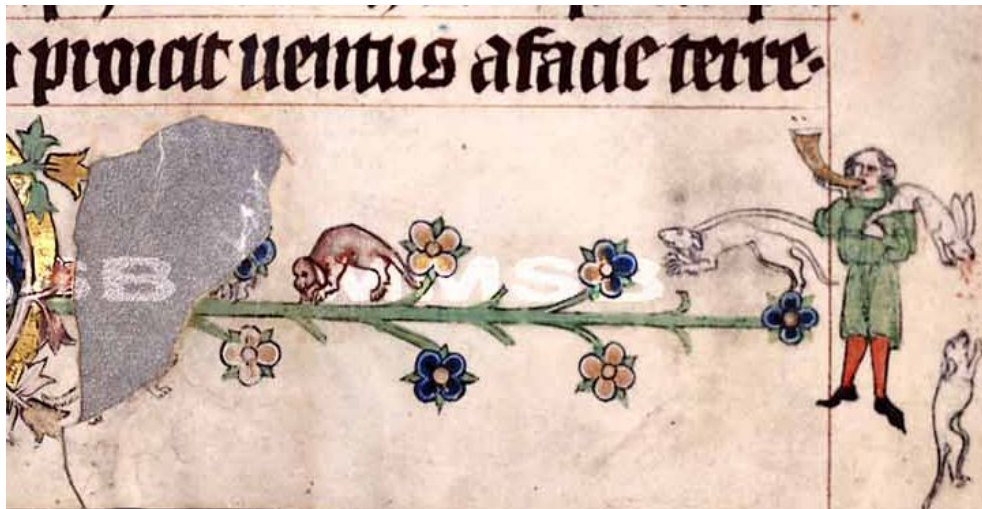 proicit uentus a facie terre.
SB MMSB